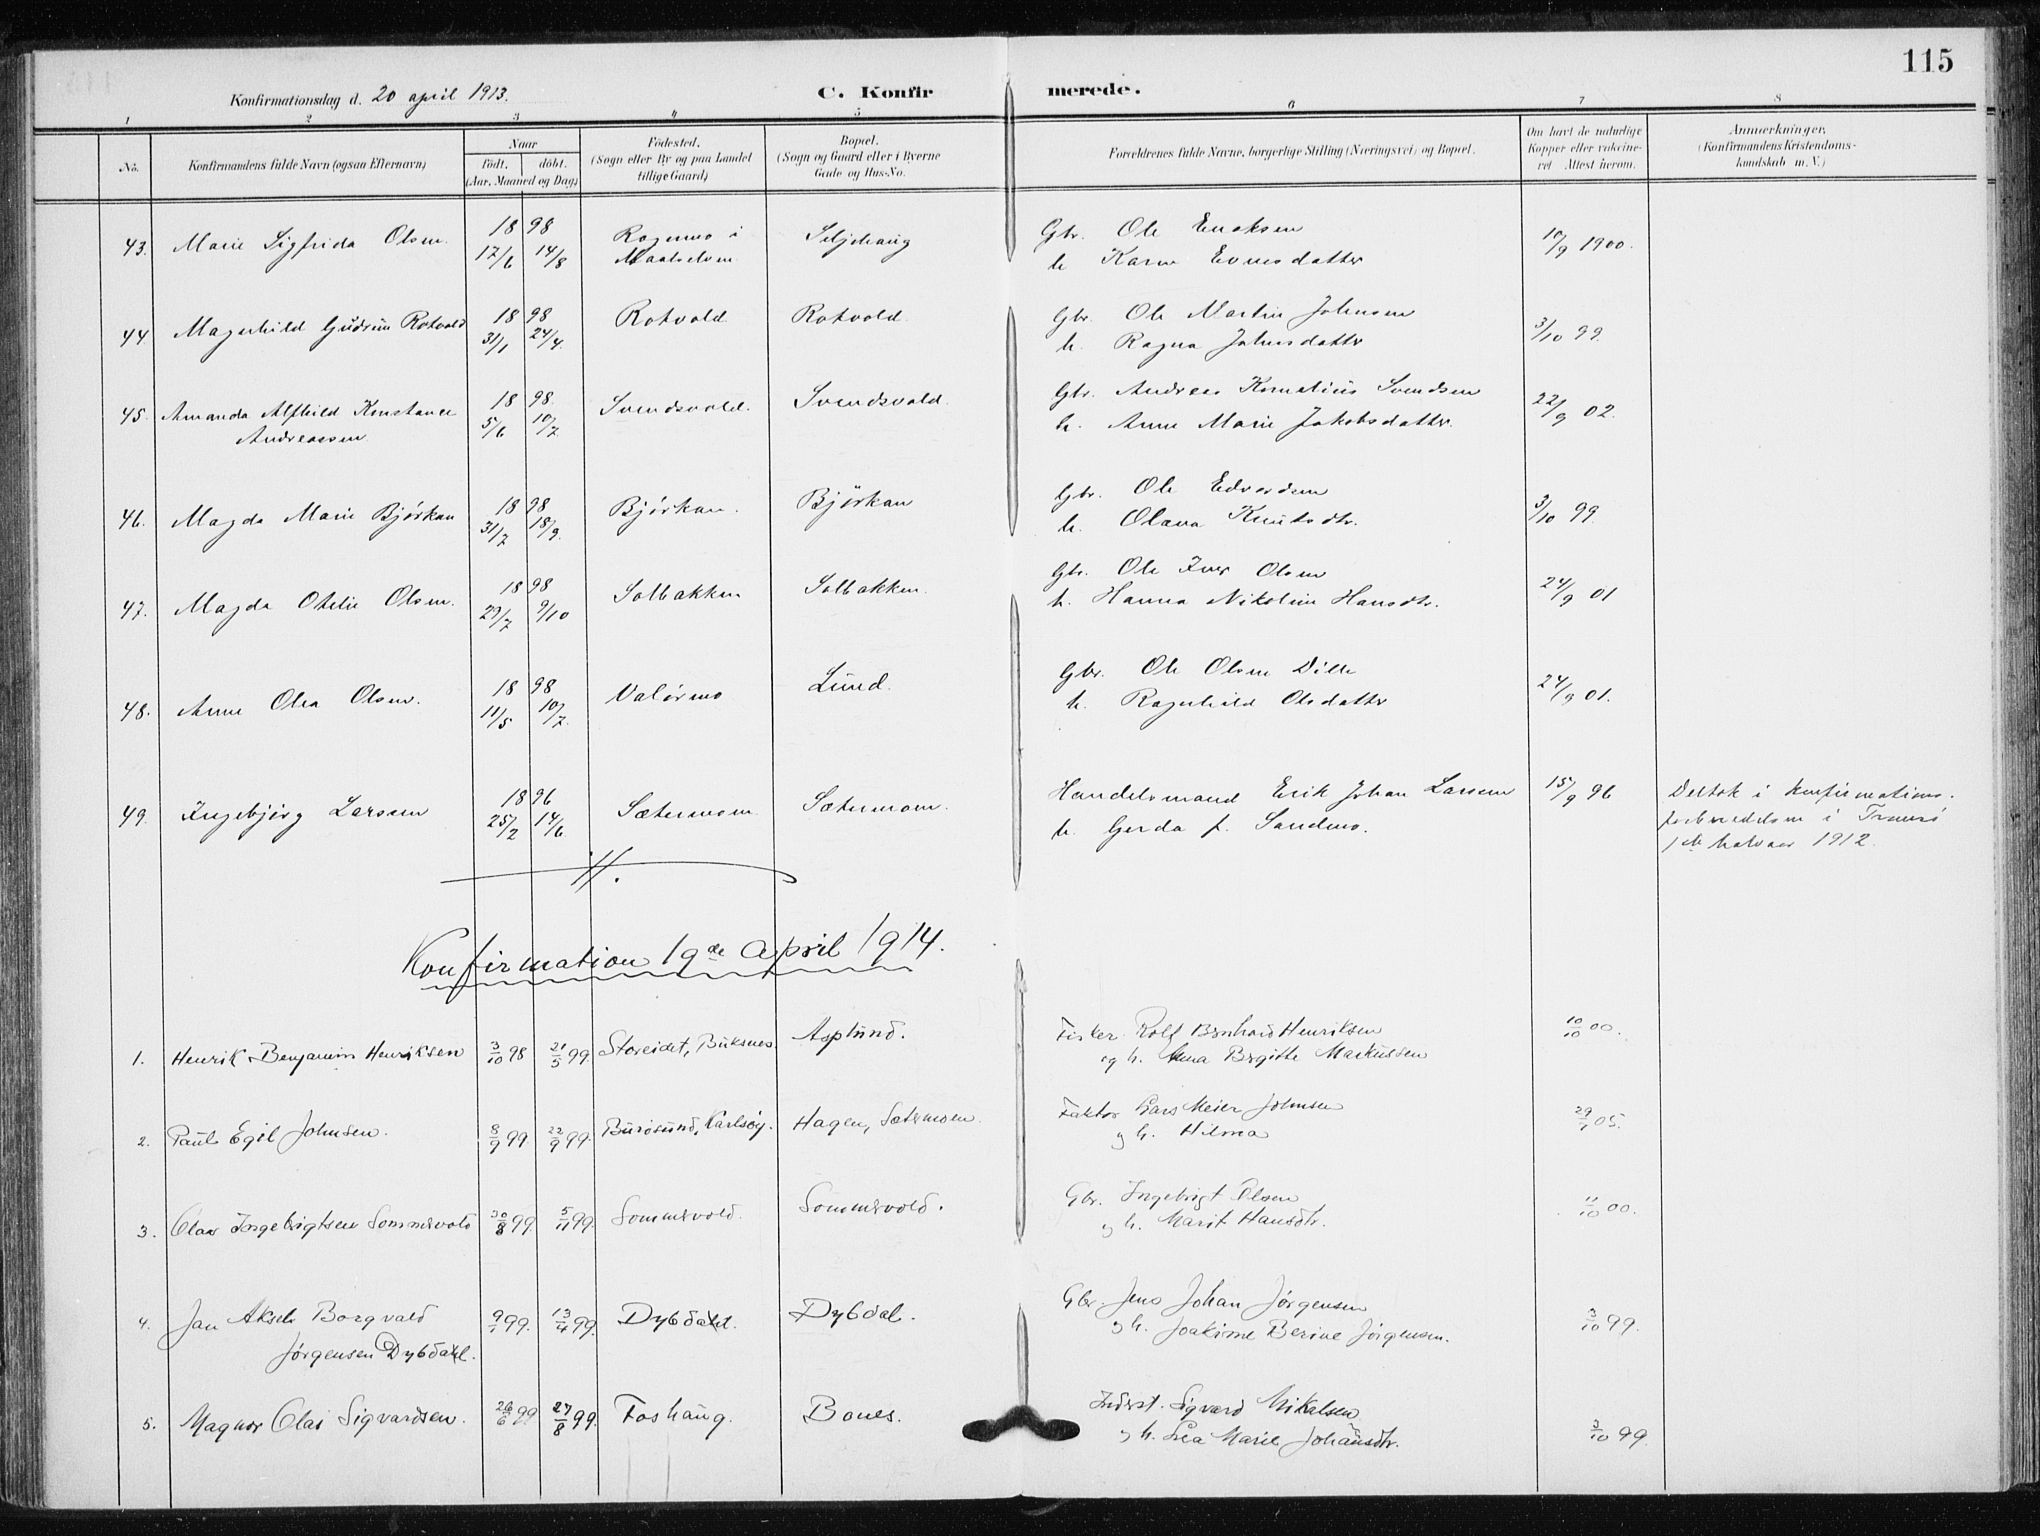 115
Konfirmationsdag d. 20 april 1913. C. Konfirmerede.
1 2 3 4 5 6 7 8
No. Konfirmandens fulde Navn (ogsaa Efternavn) Naar födt. döbt. (Aar, Maaned og Dag) Födested. (Sogn eller By og paa Landet tillige Gaard) Bopæl. (Sogn og Gaard eller i Byerne Gade og Hus-No. Forældrenes fulde Navne, borgerlige Stilling (Næringsvei) og Bopæl. Om havt de naturlige Kopper eller vaccineret Attest herom. Anmærkninger. (Konfirmandens Kristendomskundskab m. V.)
43. Marie Sigfrida Olsen. 1898 17/6 14/8 i Maalselven Seljehaug Gbr. Ole Eriksen 10/9 1900.
h. Karen
44 Magnhild Gudrun Rotvold 1898 31/1 24/4. Rotvold Rotvold. Gbr. Ole Martin Johnsen 3/10 99.
h. Ragna Johnsdatter
45. Amanda Alfhild Konstanse 1898. 5/6 10/7 Svendsvold. Svendsvold. Gbr. Andreas Kornelius Svendsen 22/9 02.
Andreassen h. Anne Marie Jakobsdatter.
46. Magda Marie Bjørkan 1898 31/7 18/9. Bjørkan. Bjørkan Gbr. Ole Edvardsen 3/10 99.
h. Olava Knutsdtr.
47. Magda Otelie Olsen. 1898 29/7 9/10 Solbakken Solbakken. Gbr. Ole Iver Olsen 24/9 01
h. Hanna Nikoline Hansdtr.
48. Anne Olea Olsen. 1898 11/5 10/7. Valørmo Lund. Gbr. Ole Olsen 24/9 01.
h. Ragnhild Olsdatter
49. Ingebjørg Larssen 1896 25/2 14/6 Sætermoen. Sætermoen. Handelsmand Erik Johan Larssen 15/9 96 Deltok i konfirmations-
h. Gerda f. Sandmo. forberedelsen i Tromsø
1ste halvaar 1912.
Konfirmation 19de april 1914.
1. Henrik Benjamin Henriksen 3/10 98 21/5 99 Storeidet, Buksnes Asplund. Fisker Rolf Bernhard Henriksen 10/10 00.
og h. Anna Birgitte Markussen
2. Paul Egil Johnsen. 8/9 99 22/9 99. Burøsund, Karlsøy. Hagen, Sætermoen. Faktor Lars Meier Johnsen 05.
og h. Hilma
3. Olav Ingebrigtsen Sommervold 30/8 99 5/11 99. Sommervold. Sommervold. Gbr. Ingebrigt Olsen 11/10 00.
og h. Marit Hansdtr.
4. Jan Aksel Borgvald 9/1 99. 13/4 99. Dybdahl. Dybdal. Gbr. Jens Johan Jørgensen 3/10 99.
Jørgensen Dybdahl. og h. Joakime Berine Jørgensen.
5. Magnor Olai Sigvardsen. 26/6 99 27/8 99. Foshaug. Bones. Inderst. Sigvard Mikalsen 3/10 99.
og h. Lea Marie Johansdtr.